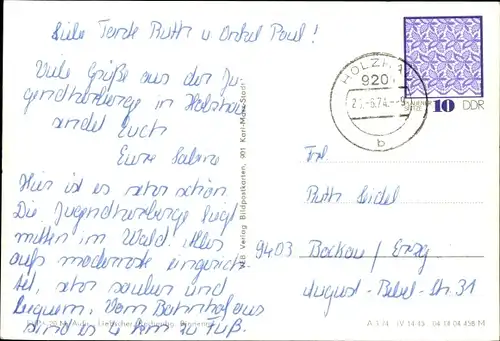 Liebe Tante Ruth u. Onkel Paul!
Viele Grüße aus der Ju-
gendherberge in Holzhau
sendet Euch
Eure Sabine
Hier ist es sehr schön.
Die Jugendherberge liegt
mitten im Wald. Alles
aufs modernste eingerich-
tet, sehr sauber und
bequem. Vom Bahnhof aus
sind es 4 km zu Fuß.
VEB Verlag Bildpostkarten, 901 Karl-Marx-Stadt
HOLZHAU
9201
-6.74.-9
b
10 DDR
Frl.
Ruth Seidel
9403 Bockau/Erzg.
August-Bebel-Str. 31
A 3/74 IV-14-45 04 14 04 458 M